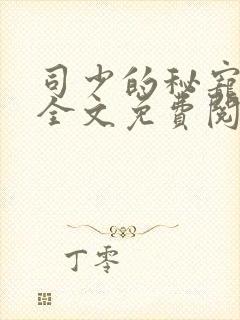 司少的秘宠
全文免费阅
丁零